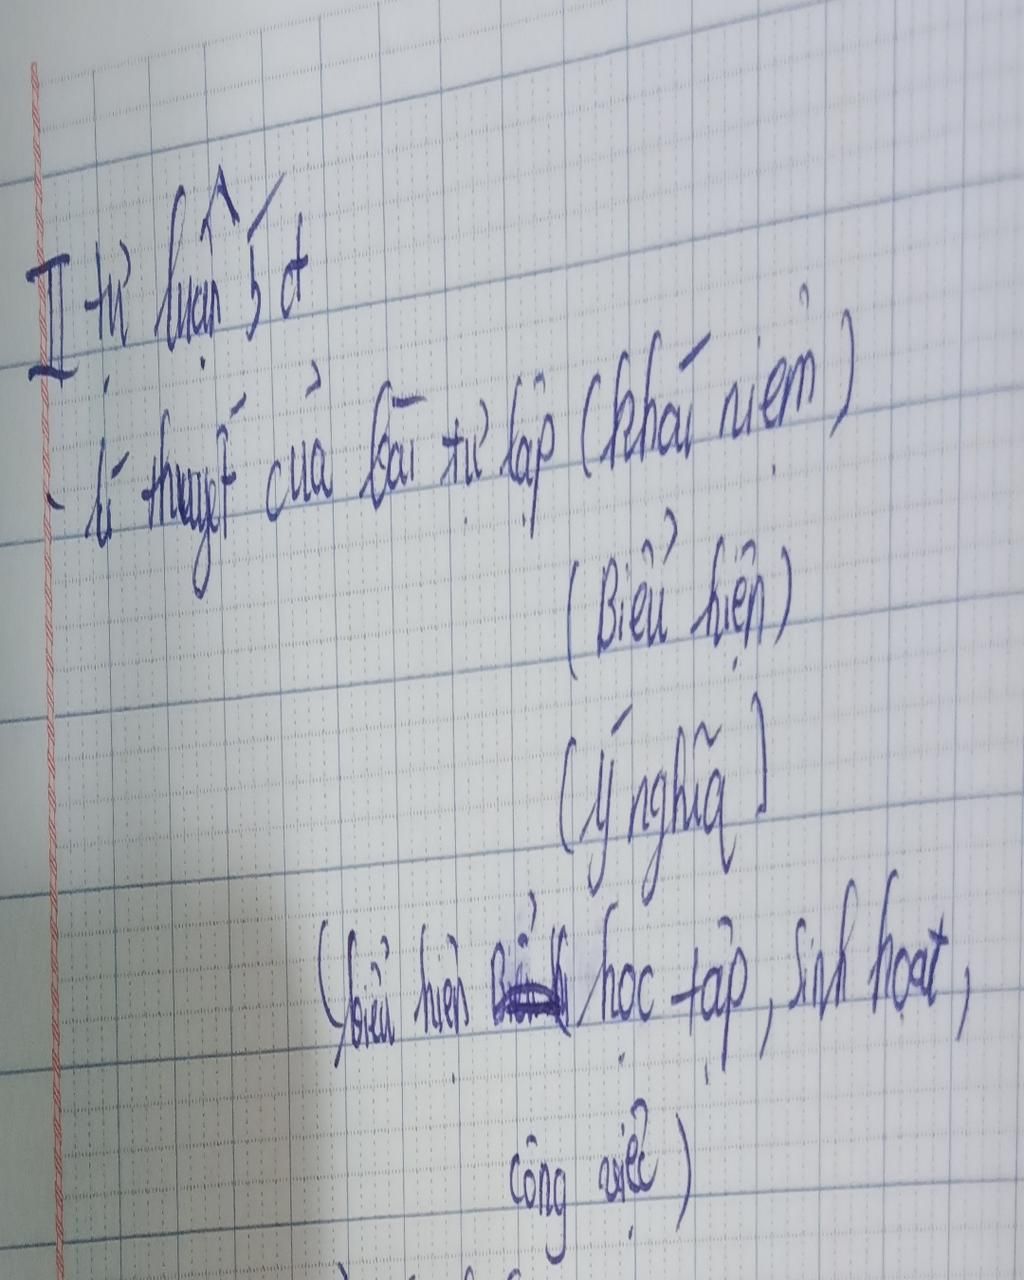 II tự luận 5 đ
- lí thuyết của bài tự lập (khái niệm)
(Biểu hiện)
(ý nghĩa)
(biểu hiện học tập, sinh hoạt,
công việc)